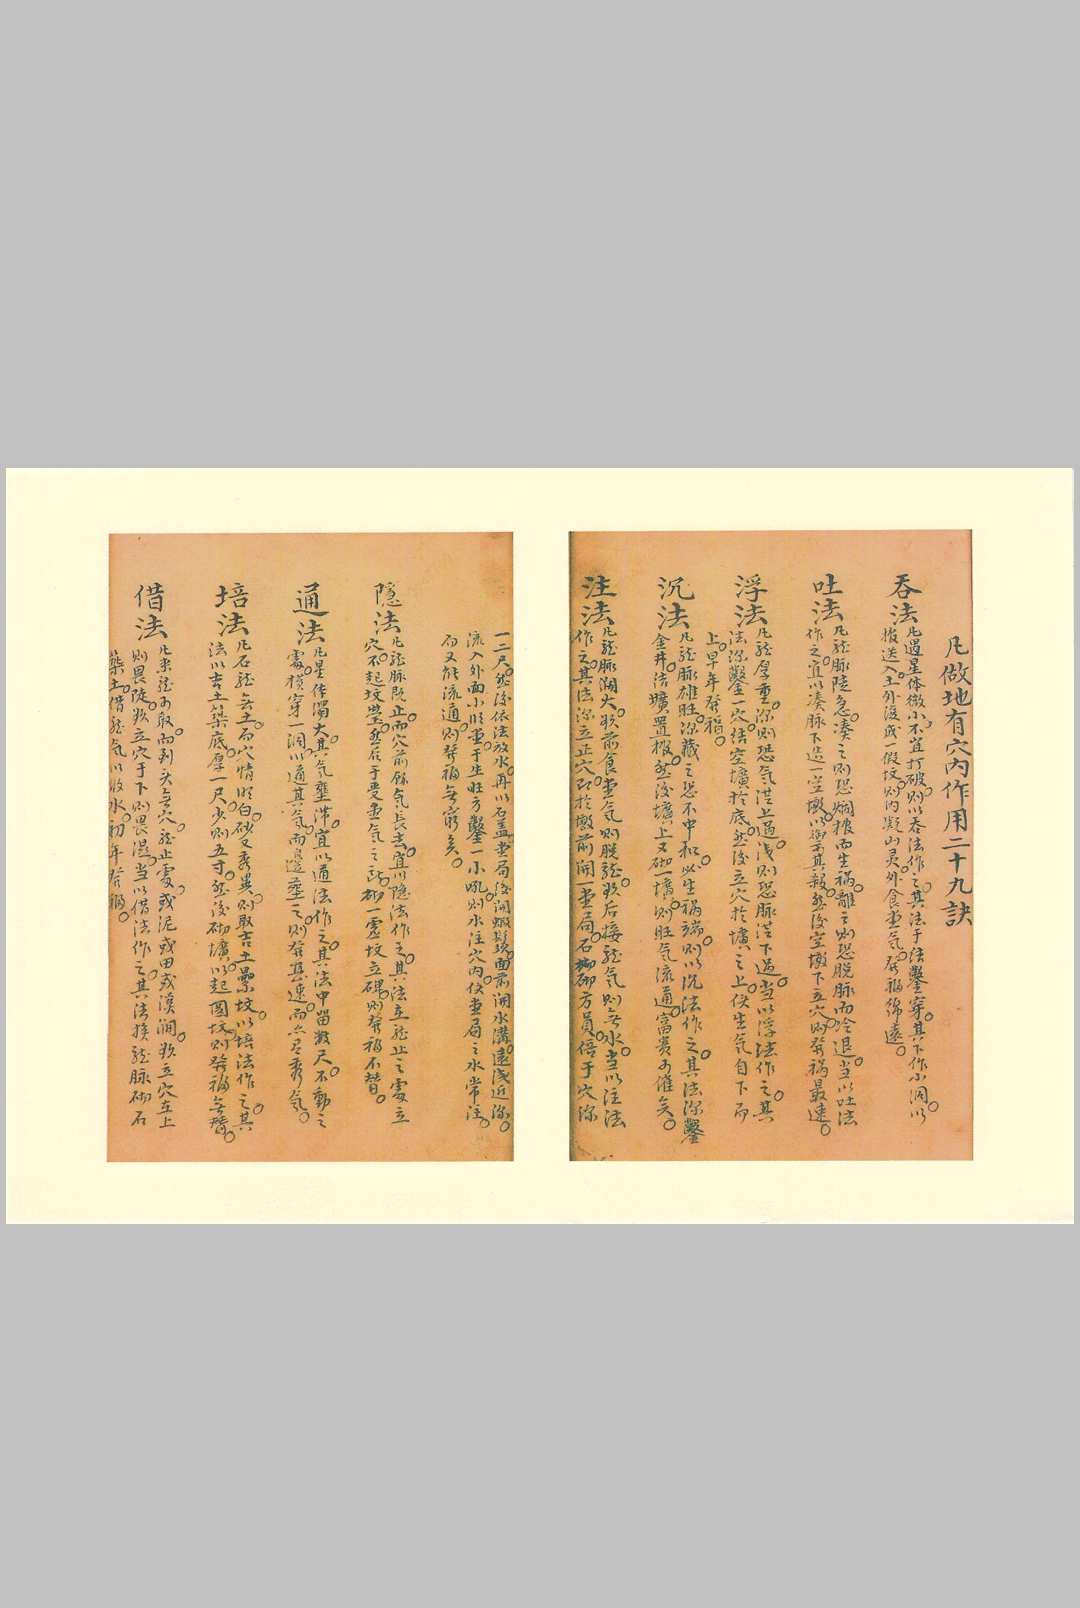 凡做地有穴内作用二十九訣
吞法 凡遇星体微小不宜打破則以吞法作之其法于法鑿穿其下作小洞以
搬送入土外後成一假坟則内凝山灵外食堂气發福綿遠
吐法 凡龍脉陡急湊之則恐爛棺而生禍離之則恐脱脉而冷退当以吐法
作之宜以湊脉下造一空墩以其殺然後空墩下立穴則發福最速
浮法 凡龍厚重深則恐气從上過浅則恐脉從下過当以浮法作之其
法深鑿一穴結空壙於底然後立穴於壙之上使生気自下而
上早年發福
沉法 凡龍脉雄旺深藏之恐不中和必生禍端則以沉法作之其法深鑿
金井法壙置搬然後壙上又砌一壙則旺気流通富贵可催矣
注法 凡龍脉濶大欲前食堂気則脱龍欲后接龍気則無水当以注法
作之其法深立正穴即於墩前開一堂局石砌方員倍于穴深
一二尺然後依法放水再以石盖堂局後開蝦鬚面前開水溝遠浅近深
流入外面小明堂于生旺方鑿一小吼則水注穴内使堂局之水常注
而又能流通則發福無窮矣
隱法 凡龍脉既止而穴前餘気長去宜以隱法作之其法立龍止之處立
穴不起坟塋然后于受堂気之所砌一虚坟立碑則發福不替
通法 凡星体濁大其気壅滞宜以通法作之其法中留数尺不動之
處横穿一洞以通其気而邉塟之則發甚速而亦尽秀気
培法 凡石龍無土而穴情明白砂又秀異則取吉土壘坟以培法作之其
法以吉土築底厚一尺少則五寸然後砌壙以起圓坟則發福無替
借法 凡来龍可取而到头無穴龍止處或泥或田或溪澗欲立穴在上
則畏陡欲立穴于下則畏濕当以借法作之其法挨龍脉砌石
築土借龍気以收水初年發福